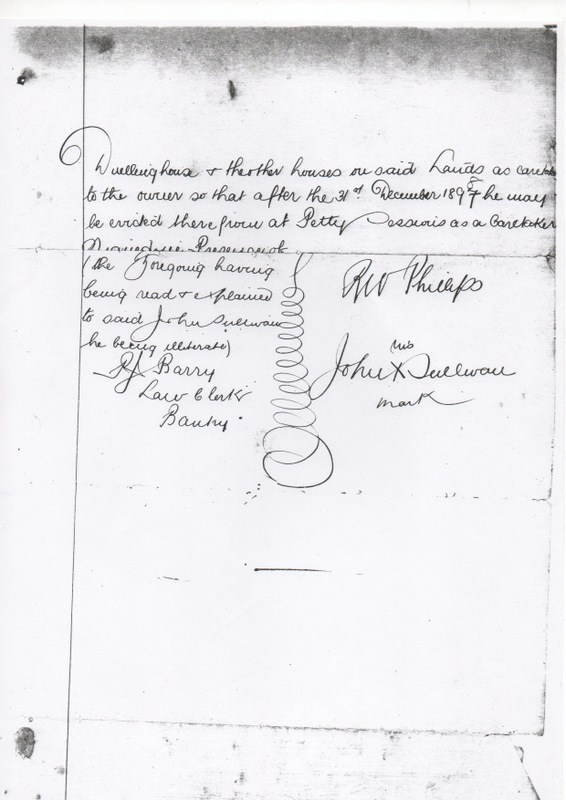 Dwelling house & the other houses on said Lands as caretaker
to the owner so that after the 31st December 1897 he may
be evicted therefrom at Petty Sessions as a Caretaker
Signed in Presence of
(the Foregoing having
being read & explained
to said John Sullivan
he being illiterate)
RJ Barry
Law Clerk
Bantry.
RW Phillips
his
John X Sullivan
mark